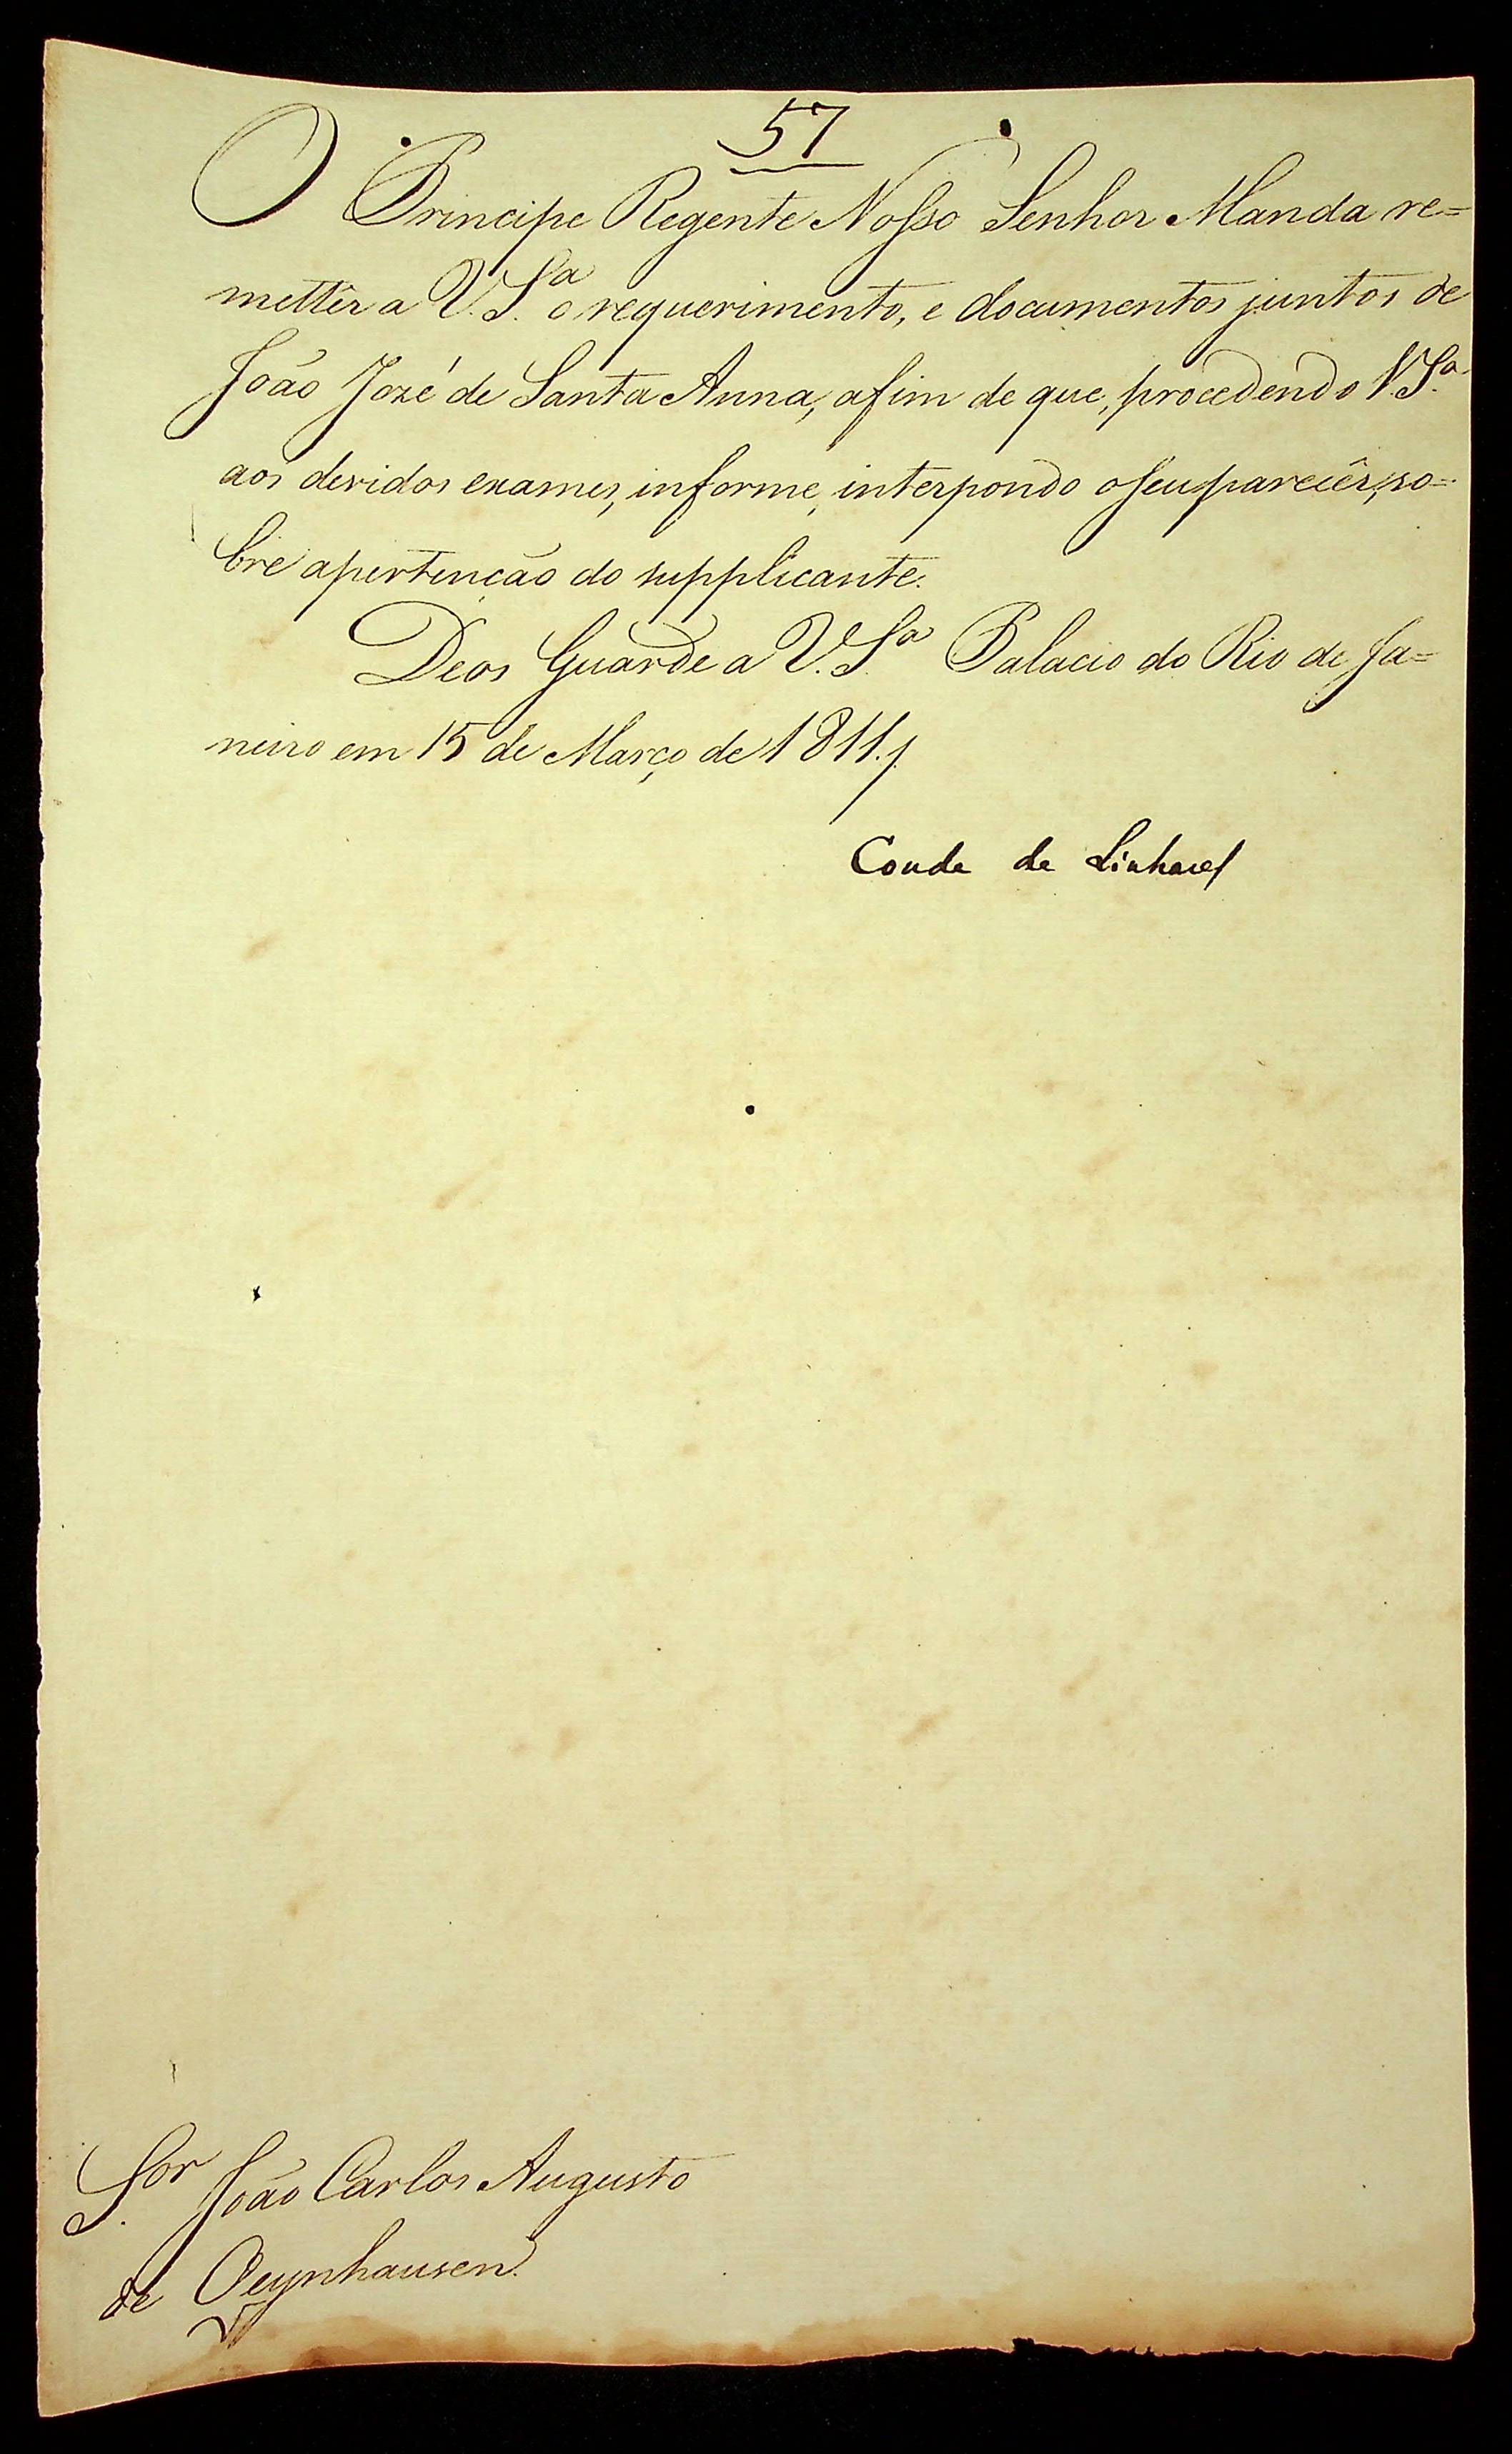 57
O Principe Regente Nosso Senhor Manda re=
mettêr a V.S.ª o requerimento, e documentos juntos de
João Jozé de Santa Anna, afim de que, procedendo V.S.ª
aos devidos exames, informe, interpondo o seu parecêr, so=
bre a pertenção do supplicante.
Deos Guarde a V.S.ª Palacio do Rio de Ja=
neiro em 15 de Março de 1811./.
Conde de Linhares
S.or João Carlos Augusto
de Oeynhausen.